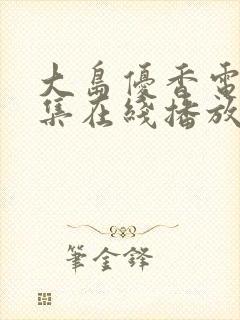 大島優香電
集在綫播放
筆金鋒